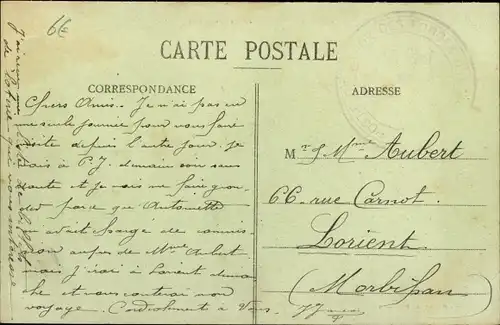 6€
CARTE POSTALE
CORRESPONDANCE
ADRESSE
Chers Amis. Je n'ai pas eu
une seule journée pour vous faire
visite depuis l'autre jour. Je
vais à P.L. demain soir sans
doute et je vais me faire gron-
der parce que Antoinette
m'avait chargé de commis-
sion auprès de Mme Aubert
mais j'irai à Lorient diman-
che et vous conterai mon
voyage. Cordialement à Vous.
Mr & Mme Aubert
66 rue Carnot.
Lorient
(Morbihan)